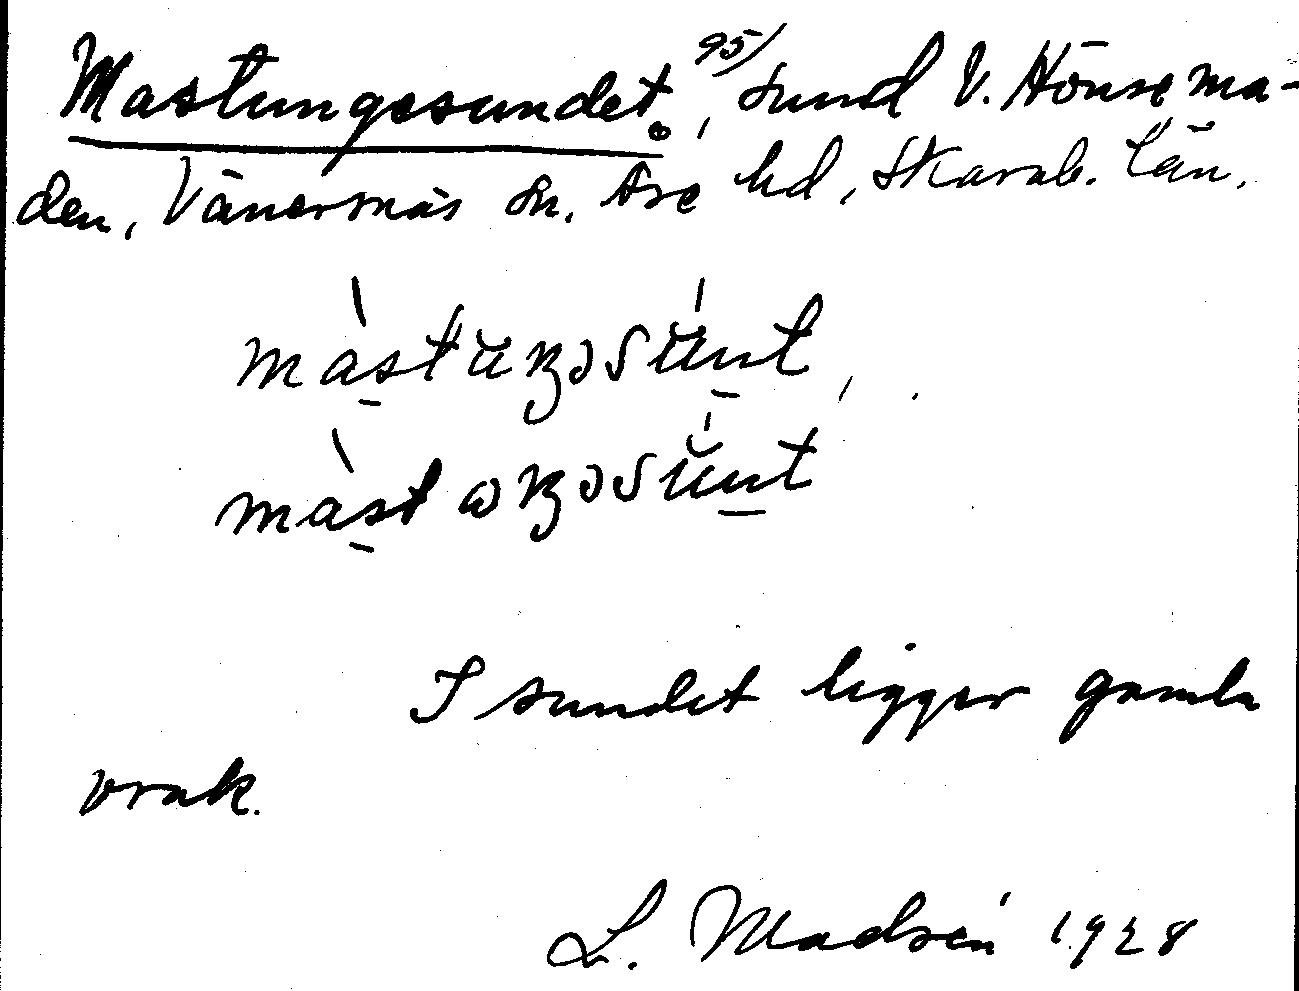 Mastungesundet, 95/ sund V. Hönsema-
den, Vänersnäs sn. Åse hd, Skarab. län.
I sundet ligger gamla
vrak.
L. Madsén 1928